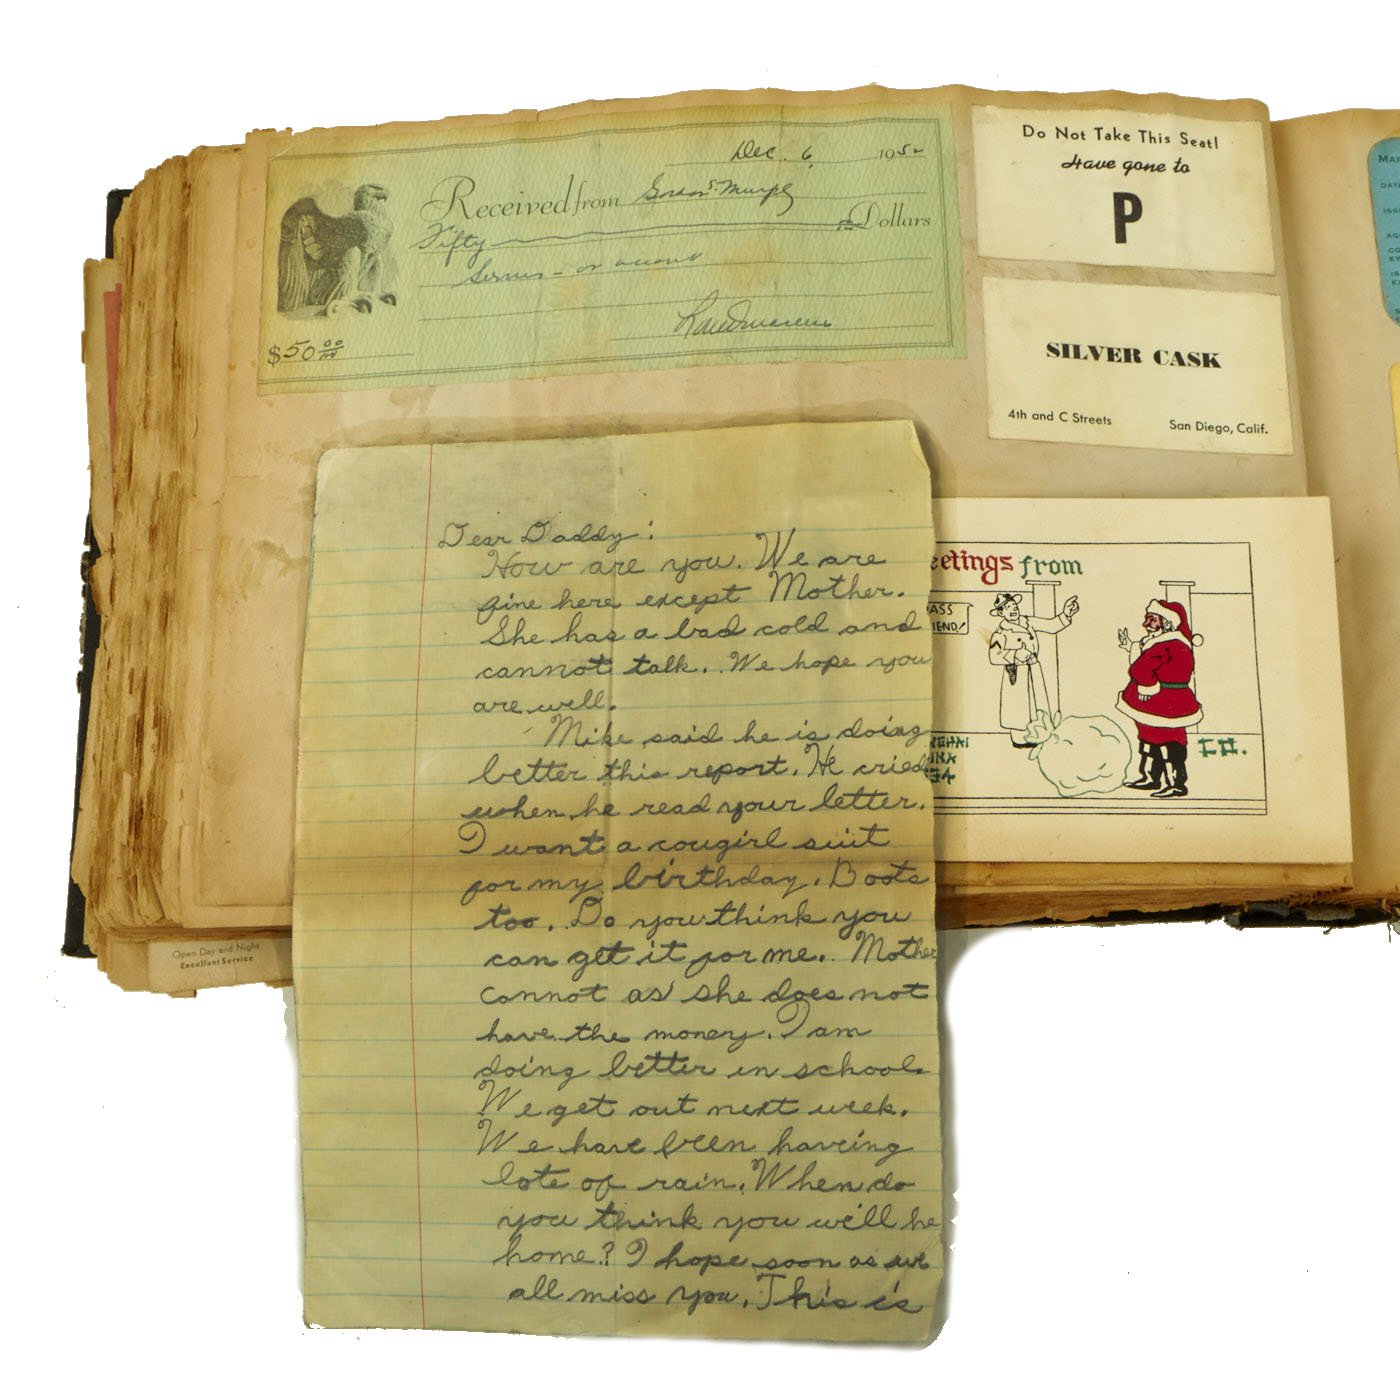 Dec. 6, 1952
Received from Gordon S. Murphy
Fifty Dollars
on account
$50 00/100
Do Not Take This Seat!
Have gone to
P
SILVER CASK
4th and C Streets San Diego, Calif.
MAR
DATE
ISS
AG
CO
etings from
ASS
IEND!
GHAI
INA
34
CO.
Open Day and Night
Excellent Service
Dear Daddy:
How are you. We are
fine here except Mother.
She has a bad cold and
cannot talk. We hope you
are well.
Mike said he is doing
better this report. He cried
when he read your letter.
I want a cowgirl suit
for my birthday. Boots
too. Do you think you
can get it for me. Mother
cannot as she does not
have the money. I am
doing better in school.
We get out next week.
We have been haveing
lots of rain. When do
you think you will be
home? I hope soon as we
all miss you. This is